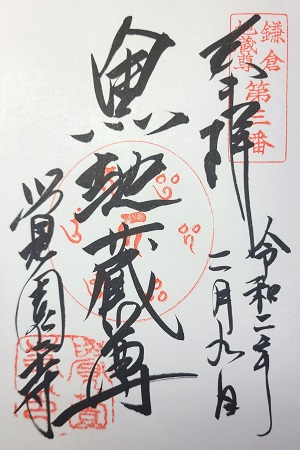 鎌倉
地蔵尊
第三番
奉拝
令和二年
二月九日
黒地蔵尊
覚園寺